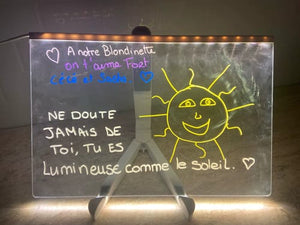 ♡ A notre Blondinette
on t'aime Fort
cécé et ♡
NE DOUTE
JAMAIS DE
Toi, TU ES
Lumineuse comme le soleil. ♡